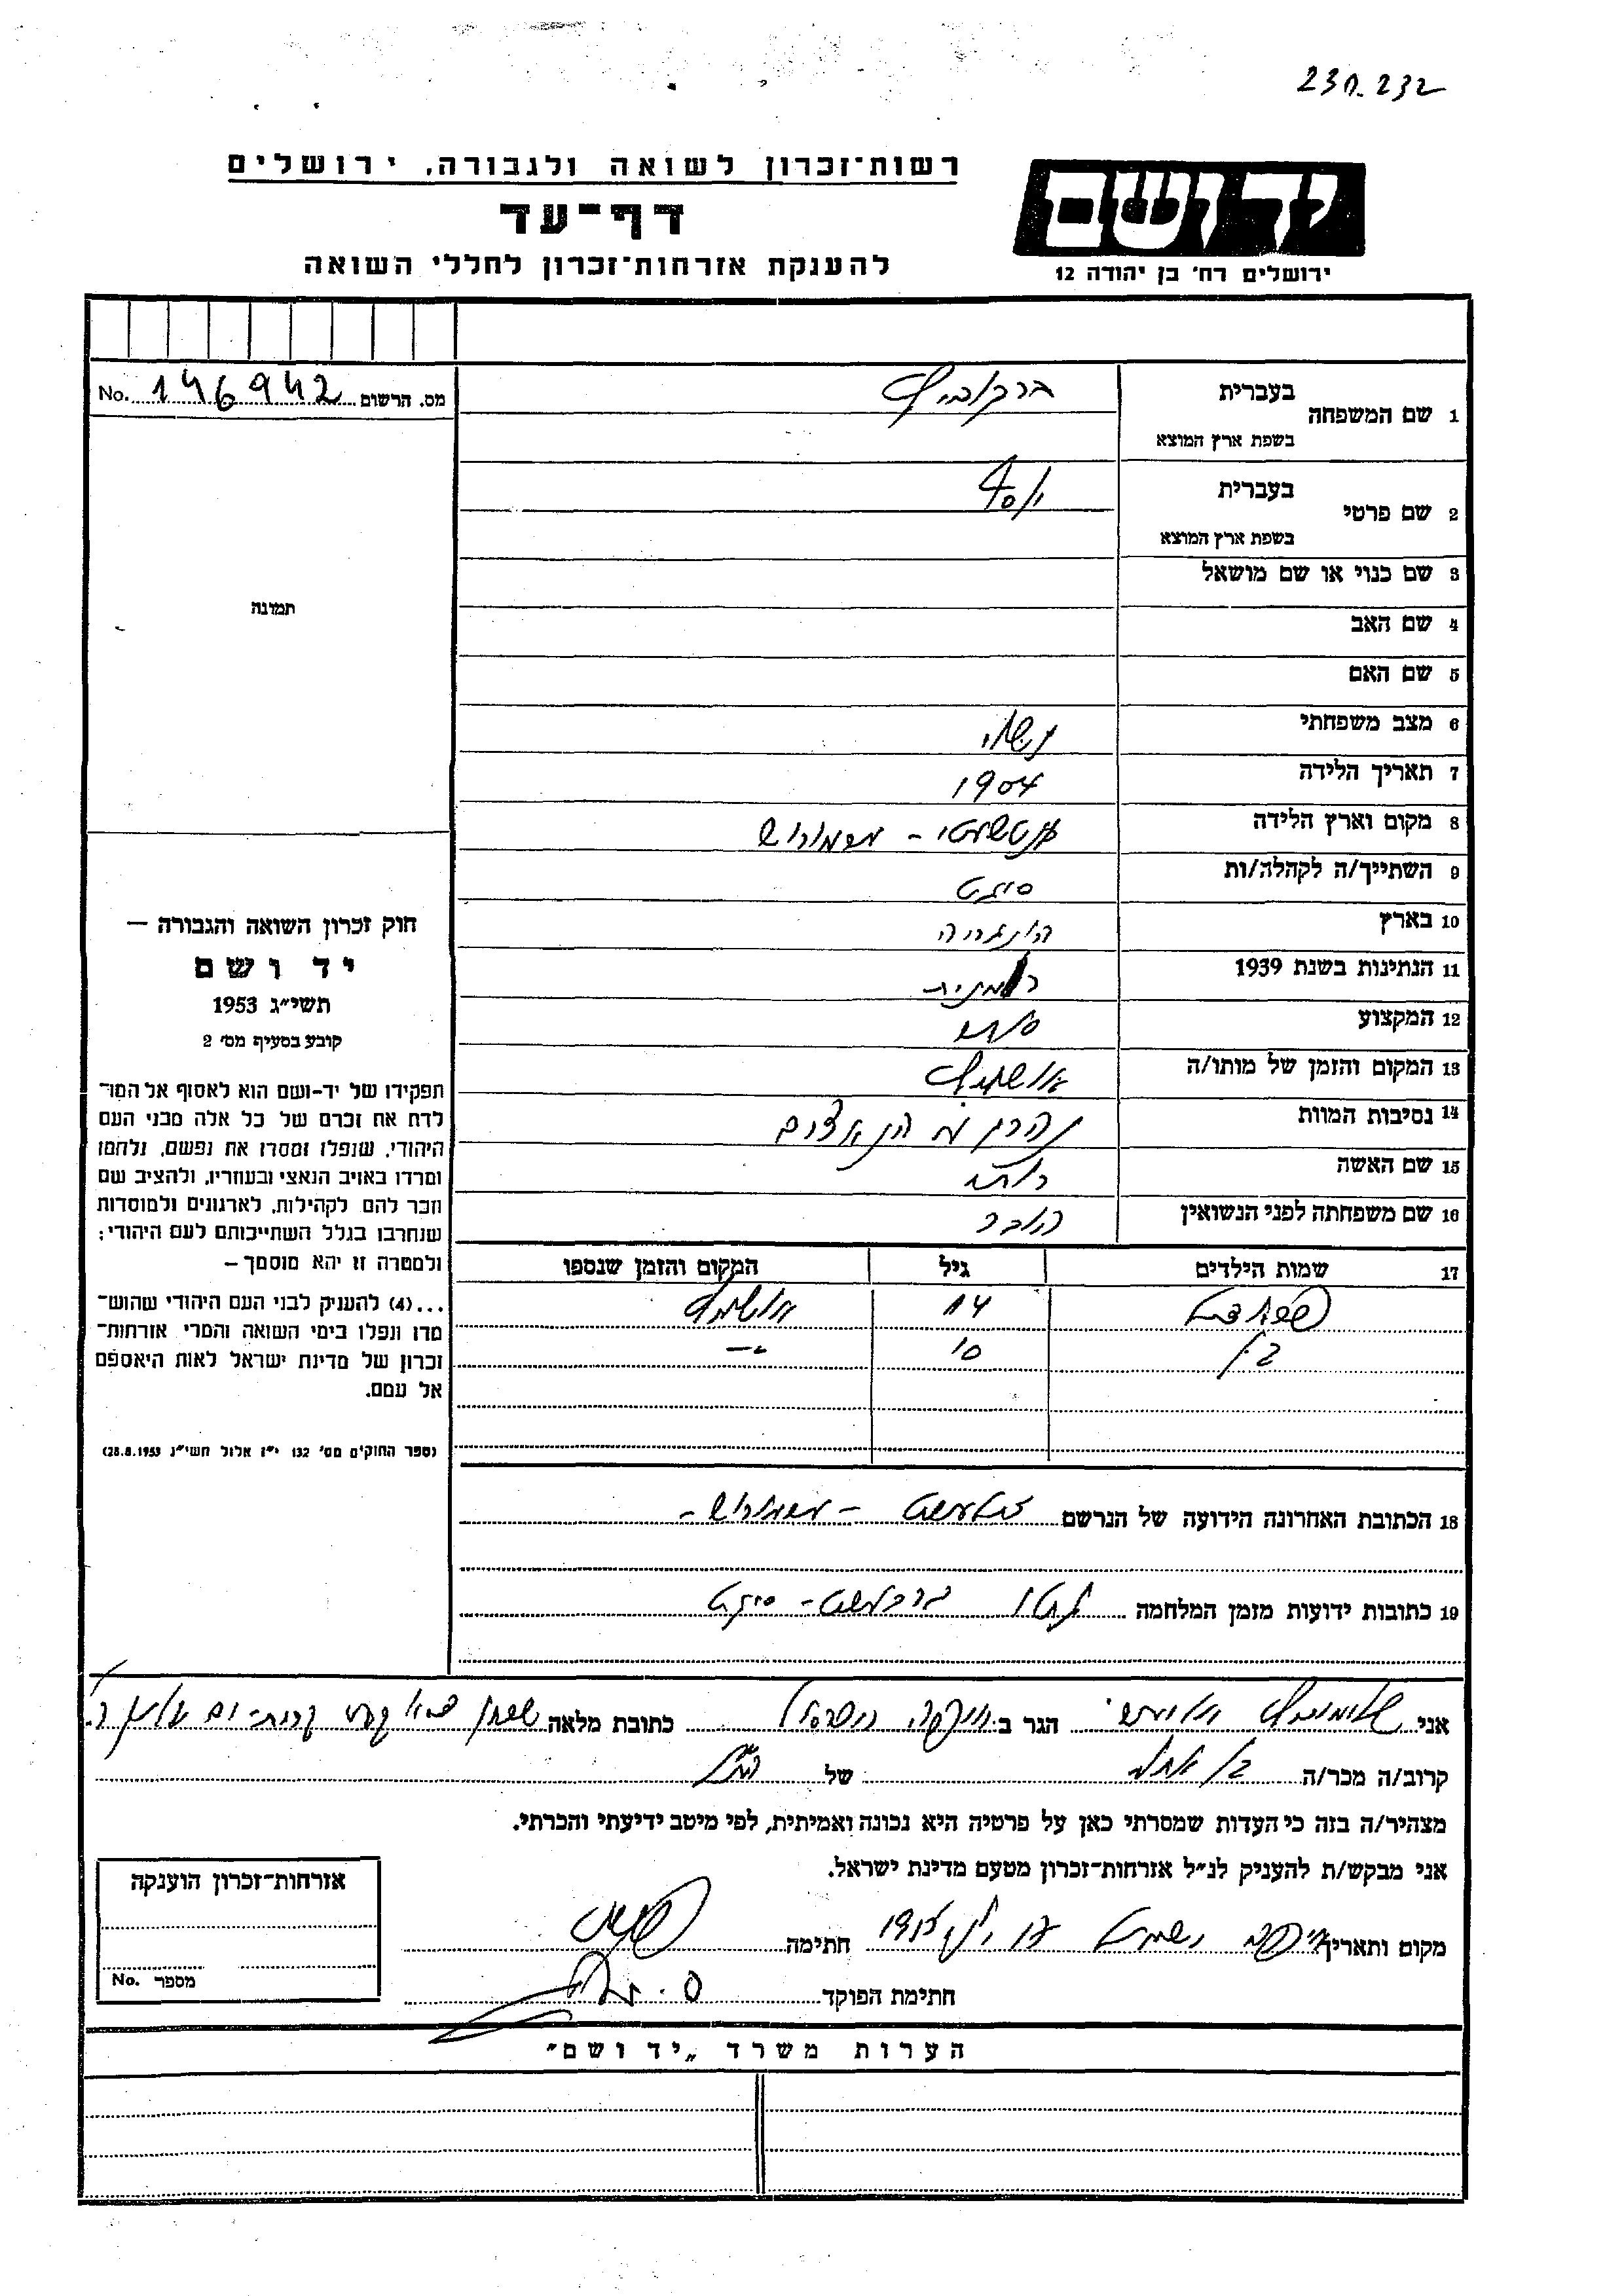 230.232
רשות־זכרון לשואה ולגבורה, ירושלים
יד ושם
דף־עד
להענקת אזרחות־זכרון לחללי השואה
ירושלים רח' בן יהודה 12
מס. הרשום 146942 No.
1 שם המשפחה
בעברית ברקוביץ
בשפת ארץ המוצא
2 שם פרטי
בעברית יוסף
בשפת ארץ המוצא
3 שם כנוי או שם מושאל
תמונה
4 שם האב
5 שם האם
6 מצב משפחתי נשוי
7 תאריך הלידה 1904
8 מקום וארץ הלידה
9 השתייך/ה לקהלה/ות סיגט
10 בארץ הונגריה
11 הנתינות בשנת 1939 רומנית
12 המקצוע סוחר
13 המקום והזמן של מותו/ה אושויץ
14 נסיבות המוות נהרג מ הנאצים
15 שם האשה
16 שם משפחתה לפני הנשואין
חוק זכרון השואה והגבורה –
יד ושם
תשי״ג 1953
קובע בסעיף מס' 2
תפקידו של יד-ושם הוא לאסוף אל המו־
לדת את זכרם של כל אלה מבני העם
היהודי, שנפלו ומסרו את נפשם, נלחמו
ומרדו באויב הנאצי ובעוזריו, ולהציב שם
וזכר להם לקהילות, לארגונים ולמוסדות
שנחרבו בגלל השתייכותם לעם היהודי;
ולמטרה זו יהא מוסמך –
...(4) להעניק לבני העם היהודי שהוש־
מדו ונפלו בימי השואה והמרי אזרחות־
זכרון של מדינת ישראל לאות היאספם
אל עמם.
(ספר החוקים מס' 132 י״ז אלול תשי״ג 28.8.1953)
17 שמות הילדים גיל המקום והזמן שנספו
14 אושויץ
בן 10 –"–
18 הכתובת האחרונה הידועה של הנרשם
19 כתובות ידועות מזמן המלחמה גטו סיגט
אני הגר ב כתובת מלאה
קרוב/ה מכר/ה של הנ"ל
מצהיר/ה בזה כי העדות שמסרתי כאן על פרטיה היא נכונה ואמיתית, לפי מיטב ידיעתי והכרתי.
אני מבקש/ת להעניק לנ״ל אזרחות־זכרון מטעם מדינת ישראל.
מקום ותאריך חתימה
חתימת הפוקד
אזרחות־זכרון הוענקה
מספר No.
הערות משרד „יד ושם"